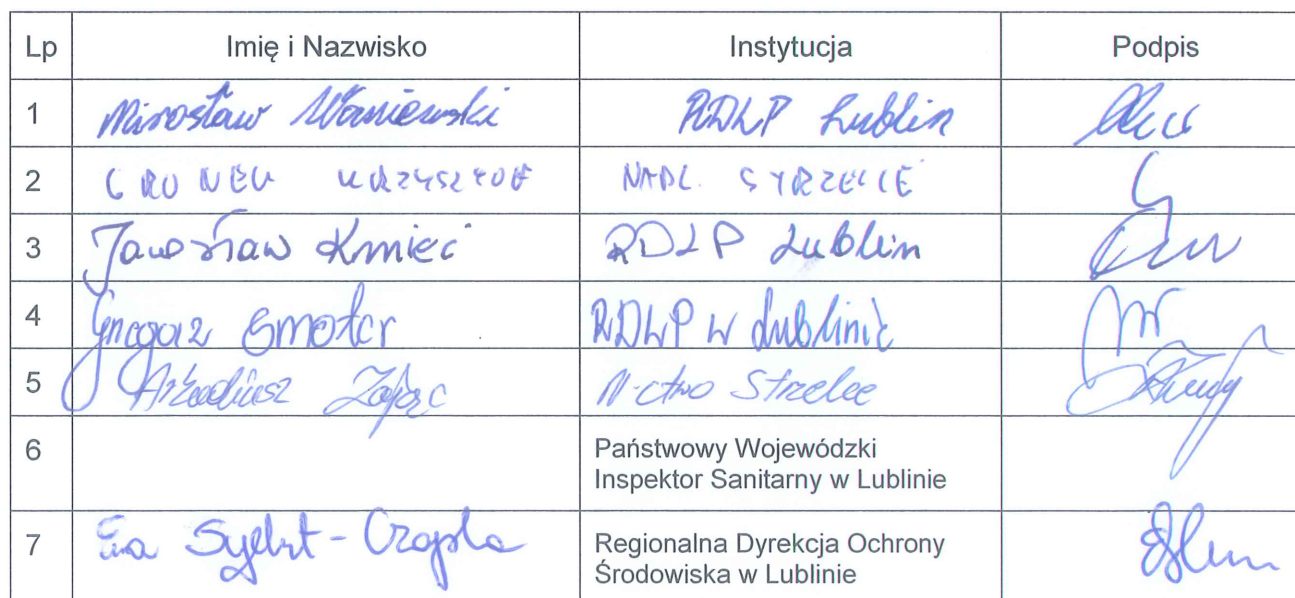 Lp Imię i Nazwisko Instytucja Podpis
1 Mirosław Waniewski RDLP Lublin
2 GRUNEK KRZYSZTOF NADL. STRZELCE
3 Jarosław Kmieć RDLP Lublin
4 Grzegorz Smoter RDLP w Lublinie
5 Arkadiusz Zając N-ctwo Strzelce
6 Państwowy Wojewódzki
Inspektor Sanitarny w Lublinie
7 Ewa Czapla Regionalna Dyrekcja Ochrony
Środowiska w Lublinie